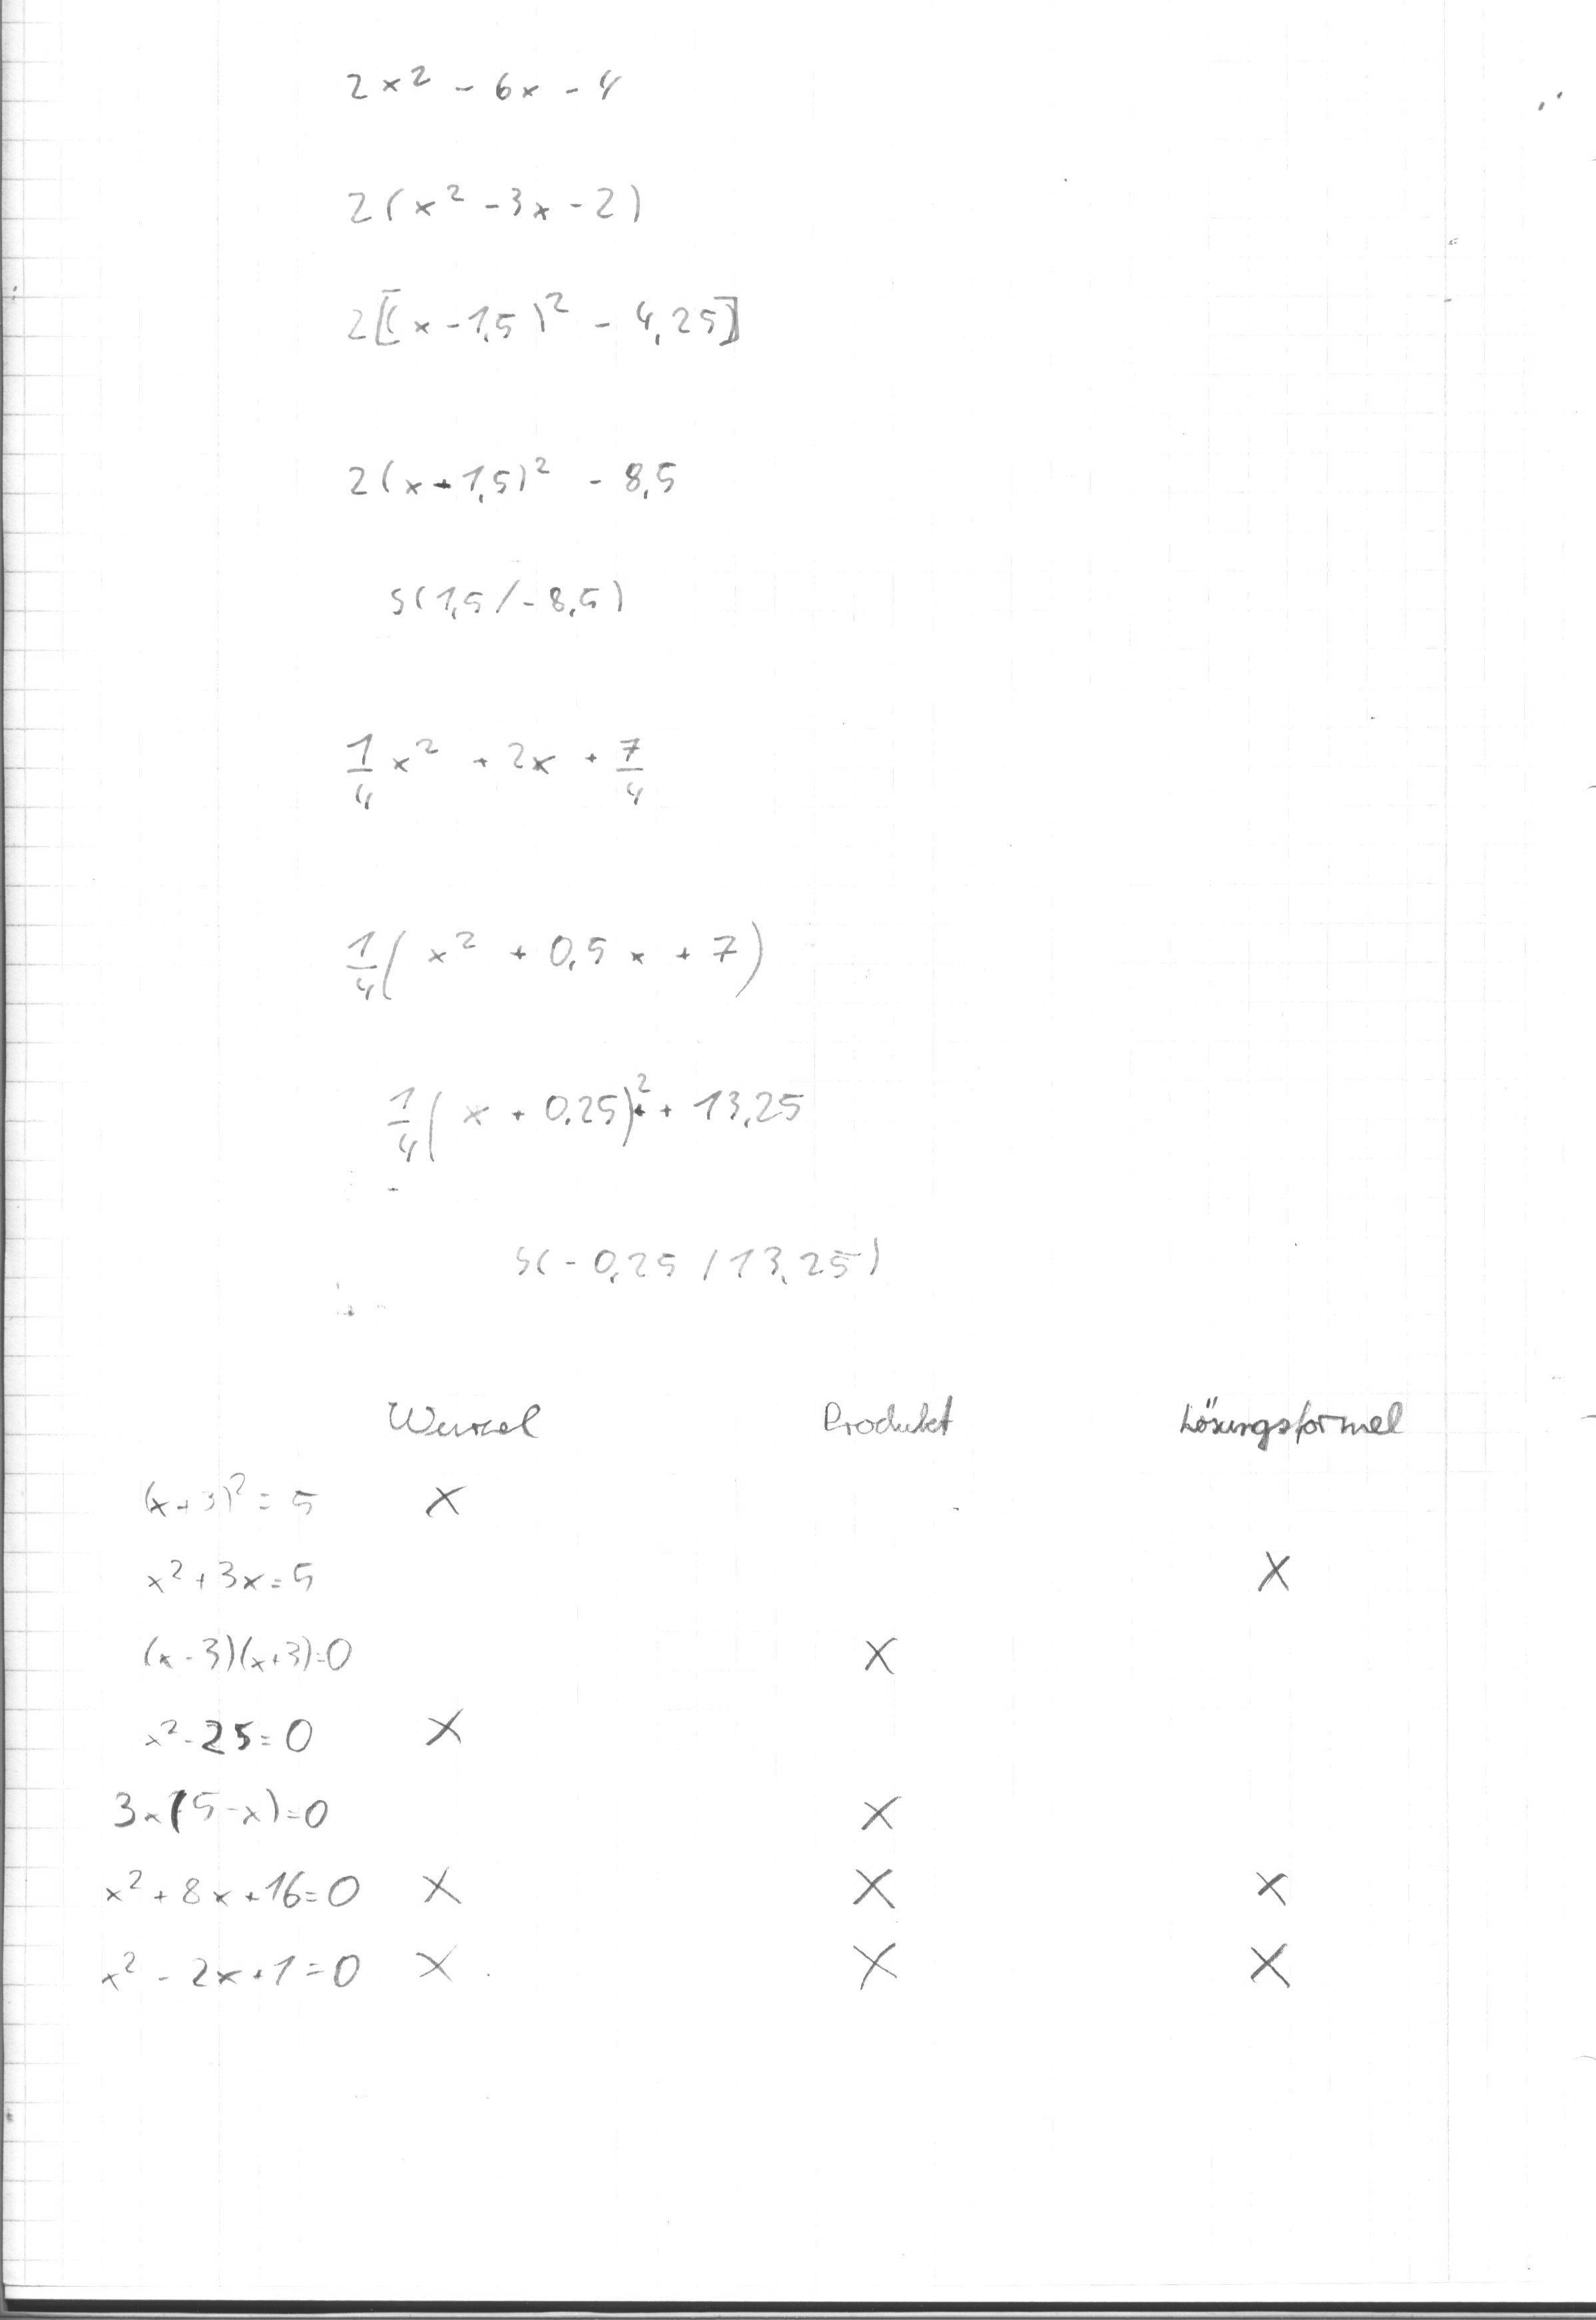 2x² - 6x - 4
2(x² - 3x - 2)
2[(x - 1,5)² - 4,25]
2(x - 1,5)² - 8,5
S(1,5/-8,5)
1/4 x² + 2x + 7/4
1/4( x² + 0,5x + 7)
1/4( x + 0,25)² + 13,25
S(-0,25 / 13,25)
Wurzel Produkt Lösungsformel
(x+3)² = 5 X
x² + 3x = 5 X
(x-3)(x+3)=0 X
x² - 25 = 0 X
3x(5-x)=0 X
x² + 8x + 16 = 0 X X X
x² - 2x + 1 = 0 X X X